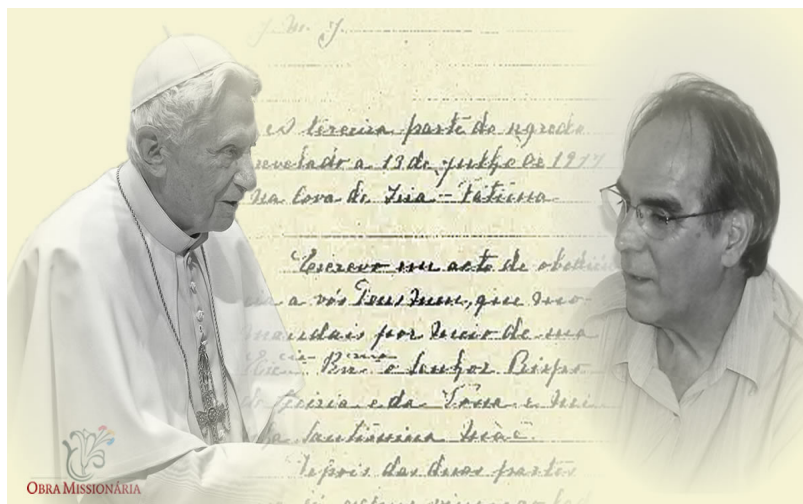 J. M. J.
A terceira parte do segredo
revelado a 13 de julho de 1917
na Cova da Iria - Fátima
Escrevo em acto de obediên
cia a vós Deus meu, que mo
mandais por meio de sua
Ex.cia Rev.ma o Senhor Bispo
de Leiria e da Vossa e mi
nha Santíssima Mãe.
Depois das duas partes
OBRA MISSIONÁRIA